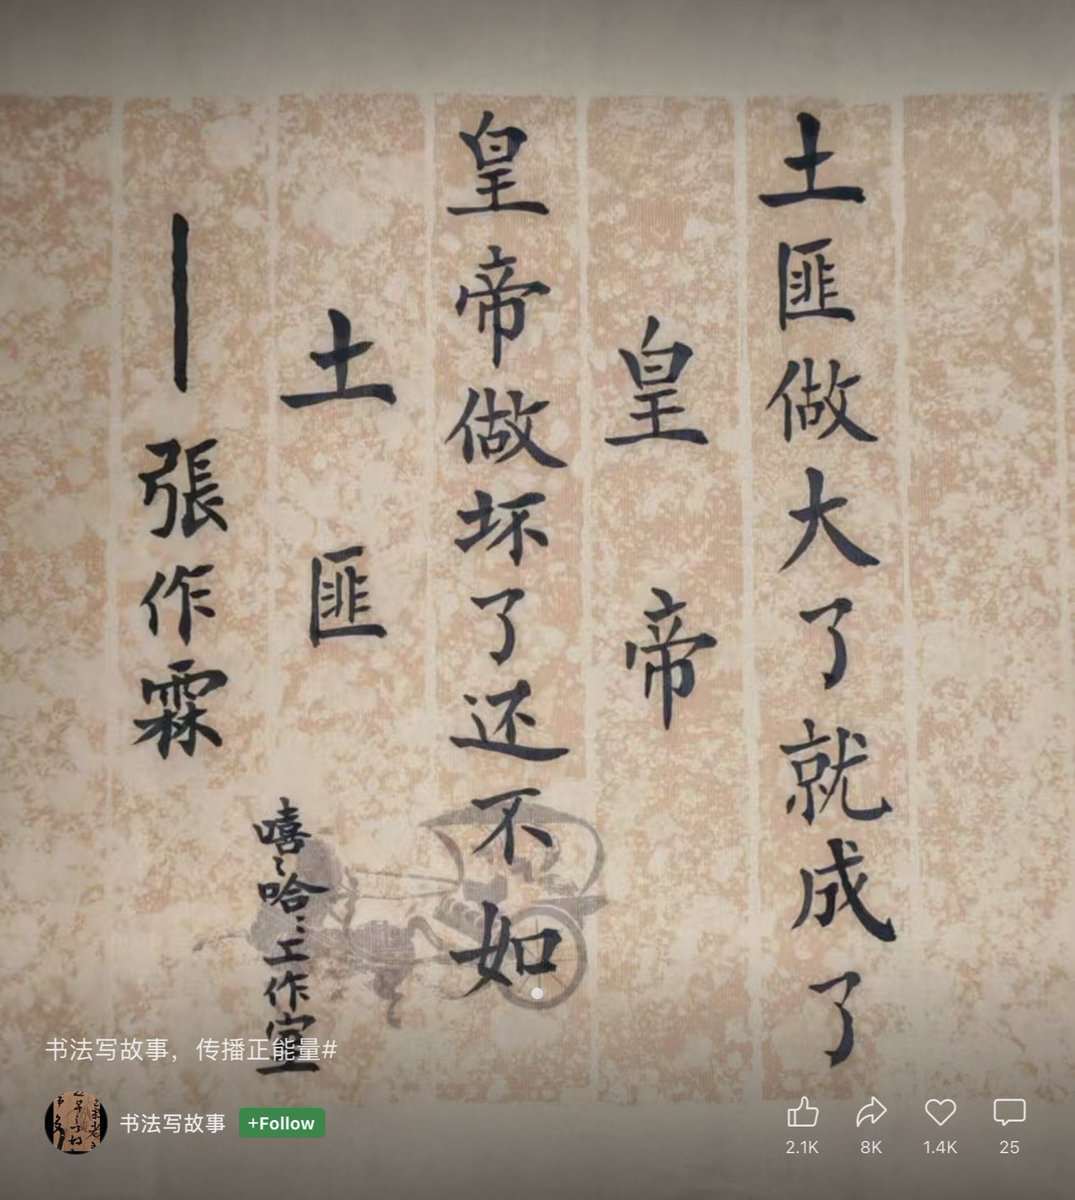 土匪做大了就成了
皇帝
皇帝做坏了还不如
土匪
—張作霖
嘻〻哈〻工作室
书法写故事，传播正能量#
书法写故事
+Follow
2.1K
8K
1.4K
25